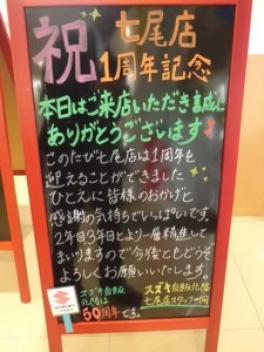 祝
七尾店
1周年記念
本日はご来店いただき誠に
ありがとうございます♪
このたび七尾店は1周年を
迎えることができました
ひとえに皆様のおかげと
感謝の気持ちでいっぱいです。
2年目3年目とより一層精進して
まいりますので今後ともどうぞ
よろしくお願いいたします。
スズキ自販北陸
七尾店スタッフ一同
スズキ自販
北陸は
50周年です。